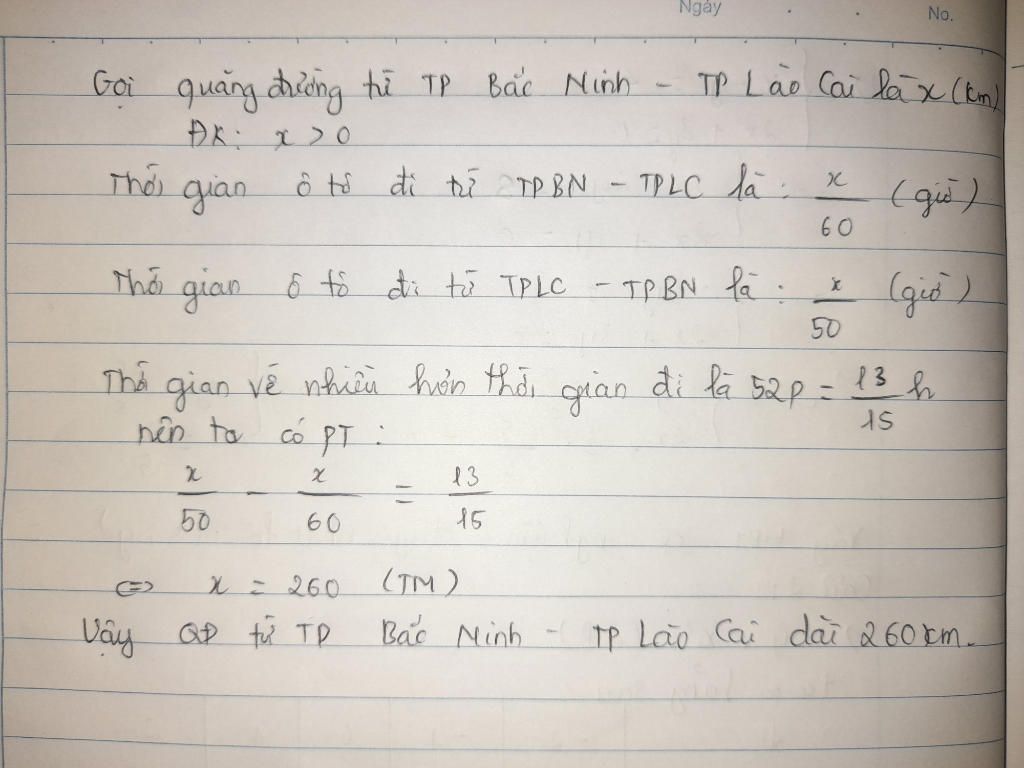 Ngày
No.
Gọi quãng đường từ TP Bắc Ninh - TP Lào Cai là x (km)
ĐK: x > 0
Thời gian ô tô đi từ TPBN - TPLC là: x/60 (giờ)
Thời gian ô tô đi từ TPLC - TPBN là: x/50 (giờ)
Thời gian về nhiều hơn thời gian đi là 52p = 13/15 h
nên ta có PT:
x/50 - x/60 = 13/15
<=> x = 260 (TM)
Vậy QĐ từ TP Bắc Ninh - TP Lào Cai dài 260 km.